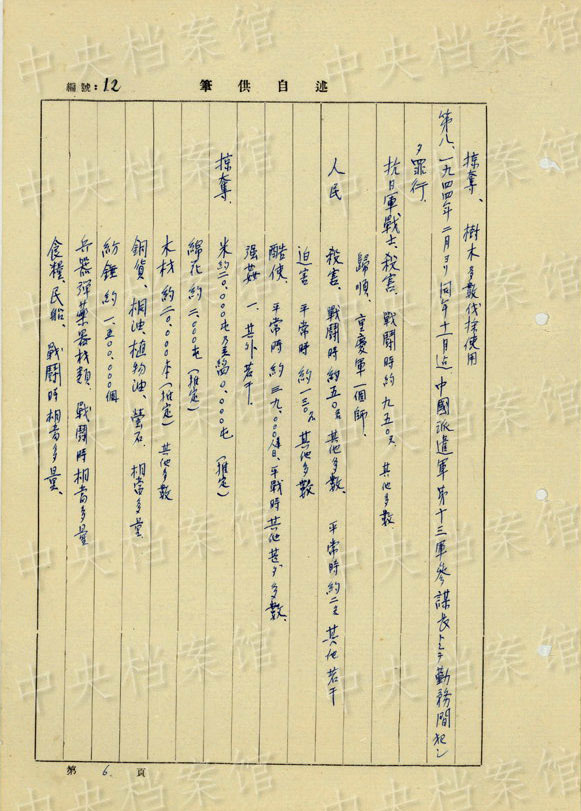 編號:12
筆供自述
掠奪、 樹木多数伐採使用
第八、一九四四年二月ヨリ同年十一月迄中國派遣軍第十三軍参謀長トシテ勤務間犯シ
タ罪行.
抗日軍戦士、殺害、戦闘時約九五〇名 其他多数
歸順、重慶軍一個師、
人民 殺害、戦闘時約五〇名 其他多数、 平常時約二名 其他若干
迫害 平常時約一三〇名 其他多数
酷使、平常時約三九、〇〇〇 平戦時其他甚ダ多数、
强姦 一、其外若干、
掠奪、 米約二〇、〇〇〇屯乃至四〇、〇〇〇屯 (推定)
綿花 約二、〇〇〇屯 (推定)
木材 約二〇、〇〇〇本 (推定) 其他多数
銅貨、桐油、植物油、螢石、相當多量
紡錘約一、五〇〇、〇〇〇個
兵器彈藥器材類 戦闘時相当多量
食糧、民船、戦闘時相当多量、
第 6. 頁
中央档案馆